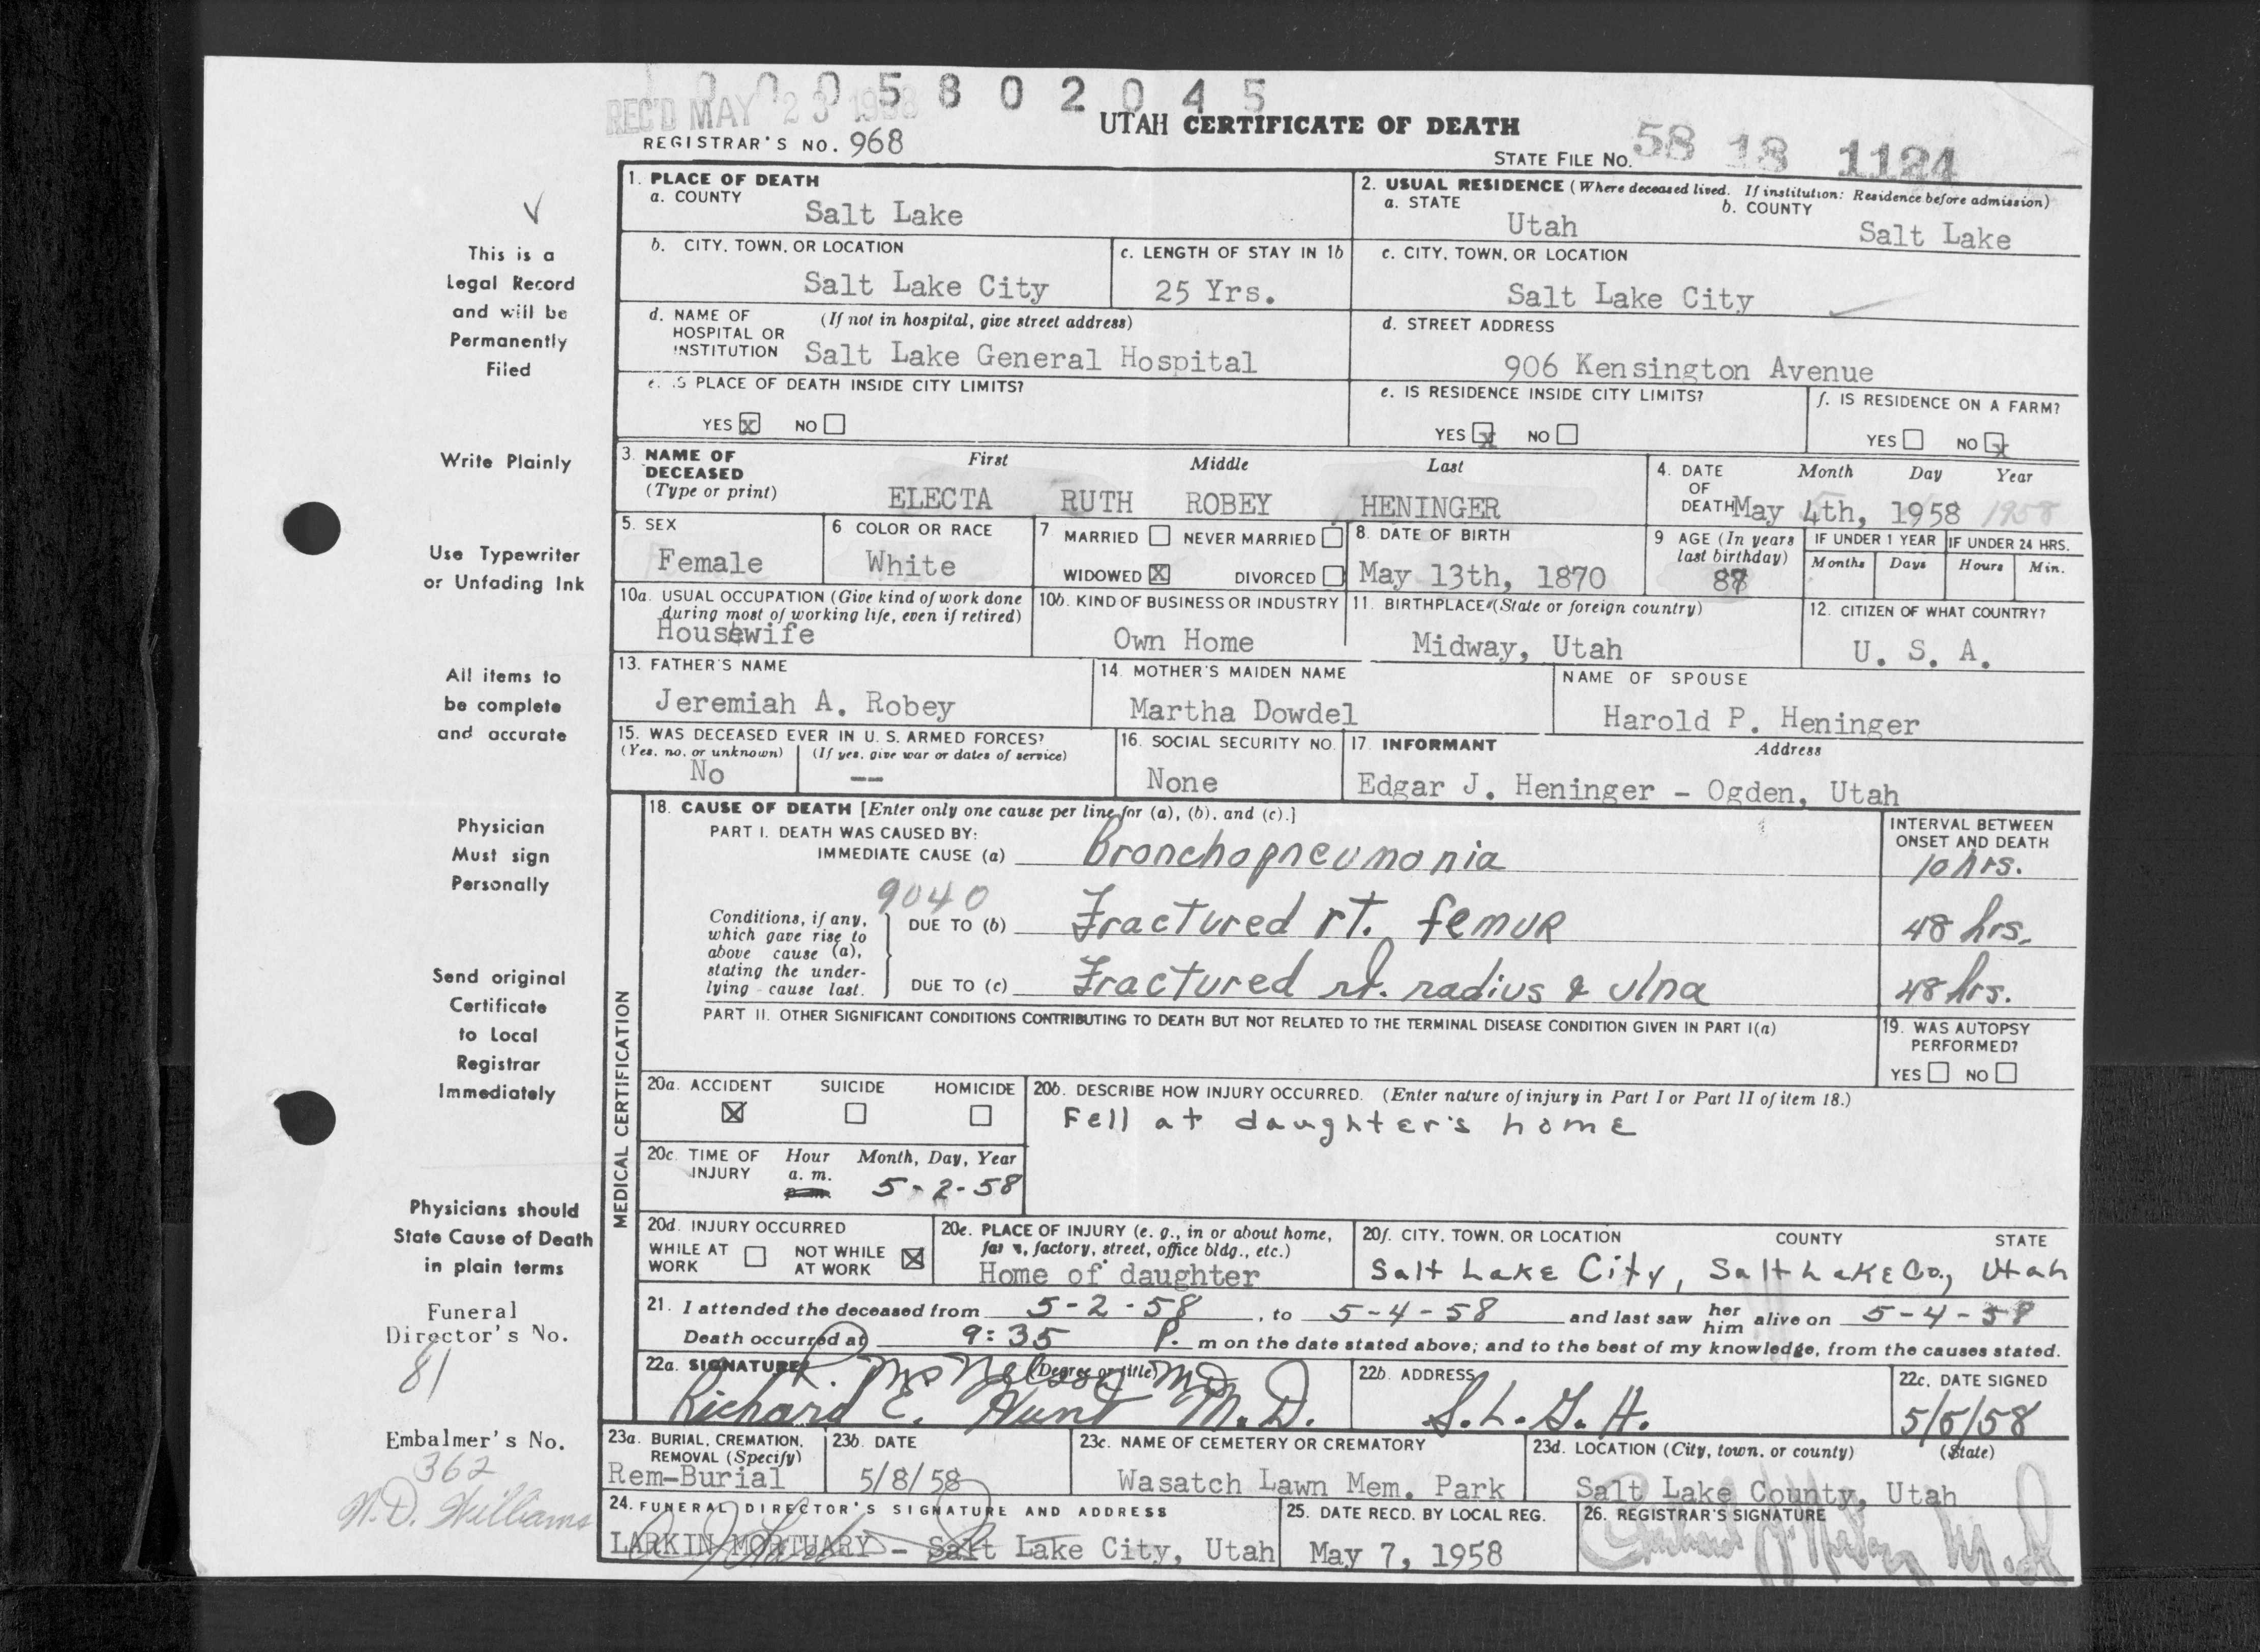 1 0 0 0 5 8 0 2 0 4 5
REC'D MAY 23 1958
UTAH CERTIFICATE OF DEATH
REGISTRAR'S NO. 968
STATE FILE NO. 58 18 1124
This is a
Legal Record
and will be
Permanently
Filed
Write Plainly
Use Typewriter
or Unfading Ink
All items to
be complete
and accurate
Physician
Must sign
Personally
Send original
Certificate
to Local
Registrar
Immediately
Physicians should
State Cause of Death
in plain terms
Funeral
Director's No.
81
Embalmer's No.
362
W.D. Williams
1. PLACE OF DEATH
a. COUNTY
Salt Lake
2. USUAL RESIDENCE (Where deceased lived. If institution: Residence before admission)
a. STATE
Utah
b. COUNTY
Salt Lake
b. CITY, TOWN, OR LOCATION
Salt Lake City
c. LENGTH OF STAY IN 1b
25 Yrs.
c. CITY, TOWN, OR LOCATION
Salt Lake City
d. NAME OF HOSPITAL OR INSTITUTION
(If not in hospital, give street address)
Salt Lake General Hospital
d. STREET ADDRESS
906 Kensington Avenue
e. IS PLACE OF DEATH INSIDE CITY LIMITS?
YES X NO
e. IS RESIDENCE INSIDE CITY LIMITS?
YES X NO
f. IS RESIDENCE ON A FARM?
YES NO X
3. NAME OF DECEASED
(Type or print)
First Middle Last
ELECTA RUTH ROBEY HENINGER
4. DATE OF DEATH
Month Day Year
May 4th, 1958 1958
5. SEX
Female
6 COLOR OR RACE
White
7. MARRIED NEVER MARRIED
WIDOWED X DIVORCED
8. DATE OF BIRTH
May 13th, 1870
9 AGE (In years last birthday)
87
IF UNDER 1 YEAR IF UNDER 24 HRS.
Months Days Hours Min.
10a. USUAL OCCUPATION (Give kind of work done during most of working life, even if retired)
Housewife
10b. KIND OF BUSINESS OR INDUSTRY
Own Home
11. BIRTHPLACE (State or foreign country)
Midway, Utah
12. CITIZEN OF WHAT COUNTRY?
U. S. A.
13. FATHER'S NAME
Jeremiah A. Robey
14. MOTHER'S MAIDEN NAME
Martha Dowdel
NAME OF SPOUSE
Harold P. Heninger
15. WAS DECEASED EVER IN U. S. ARMED FORCES?
(Yes, no. or unknown) (If yes, give war or dates of service)
No --
16. SOCIAL SECURITY NO.
None
17. INFORMANT Address
Edgar J. Heninger - Ogden, Utah
MEDICAL CERTIFICATION
18. CAUSE OF DEATH [Enter only one cause per line for (a), (b), and (c).]
PART I. DEATH WAS CAUSED BY:
IMMEDIATE CAUSE (a) Bronchopneumonia
INTERVAL BETWEEN ONSET AND DEATH
10 hrs.
9040
Conditions, if any, which gave rise to above cause (a), stating the underlying cause last.
DUE TO (b) Fractured rt. femur
48 hrs.
DUE TO (c) Fractured rt. radius & ulna
48 hrs.
PART II. OTHER SIGNIFICANT CONDITIONS CONTRIBUTING TO DEATH BUT NOT RELATED TO THE TERMINAL DISEASE CONDITION GIVEN IN PART I(a)
19. WAS AUTOPSY PERFORMED?
YES NO
20a. ACCIDENT SUICIDE HOMICIDE
X
20b. DESCRIBE HOW INJURY OCCURRED. (Enter nature of injury in Part I or Part II of item 18.)
Fell at daughter's home
20c. TIME OF INJURY
Hour Month, Day, Year
a. m.
p. m. 5-2-58
20d. INJURY OCCURRED
WHILE AT WORK NOT WHILE AT WORK X
20e. PLACE OF INJURY (e. g., in or about home, farm, factory, street, office bldg., etc.)
Home of daughter
20f. CITY, TOWN, OR LOCATION COUNTY STATE
Salt Lake City, Salt Lake Co., Utah
21. I attended the deceased from 5-2-58, to 5-4-58 and last saw her him alive on 5-4-58
Death occurred at 9:35 P. m on the date stated above; and to the best of my knowledge, from the causes stated.
22a. SIGNATURE (Degree or title)
Nelson MD
Richard E. Hunt M.D.
22b. ADDRESS
S.L.G.H.
22c. DATE SIGNED
5/5/58
23a. BURIAL, CREMATION, REMOVAL (Specify)
Rem-Burial
23b. DATE
5/8/58
23c. NAME OF CEMETERY OR CREMATORY
Wasatch Lawn Mem. Park
23d. LOCATION (City, town. or county) (State)
Salt Lake County, Utah
24. FUNERAL DIRECTOR'S SIGNATURE AND ADDRESS
LARKIN MORTUARY - Salt Lake City, Utah
25. DATE RECD. BY LOCAL REG.
May 7, 1958
26. REGISTRAR'S SIGNATURE
M.D.